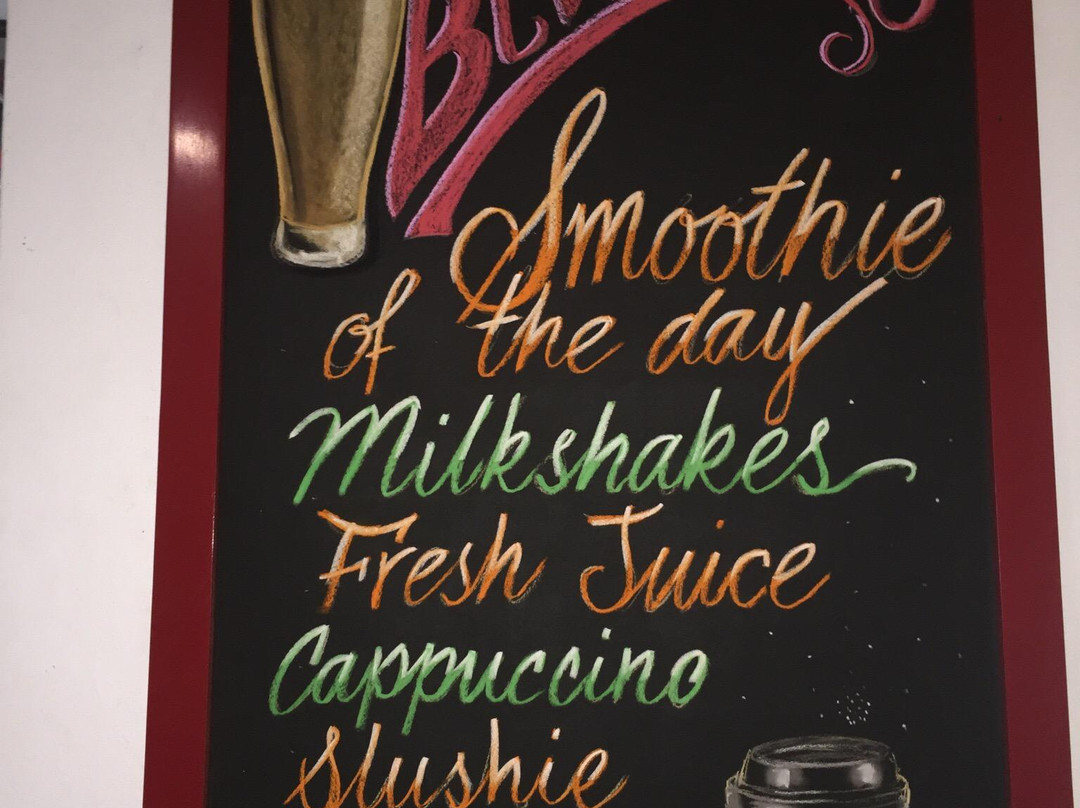 Smoothie
of the day
Milkshakes
Fresh Juice
Cappuccino
Slushie